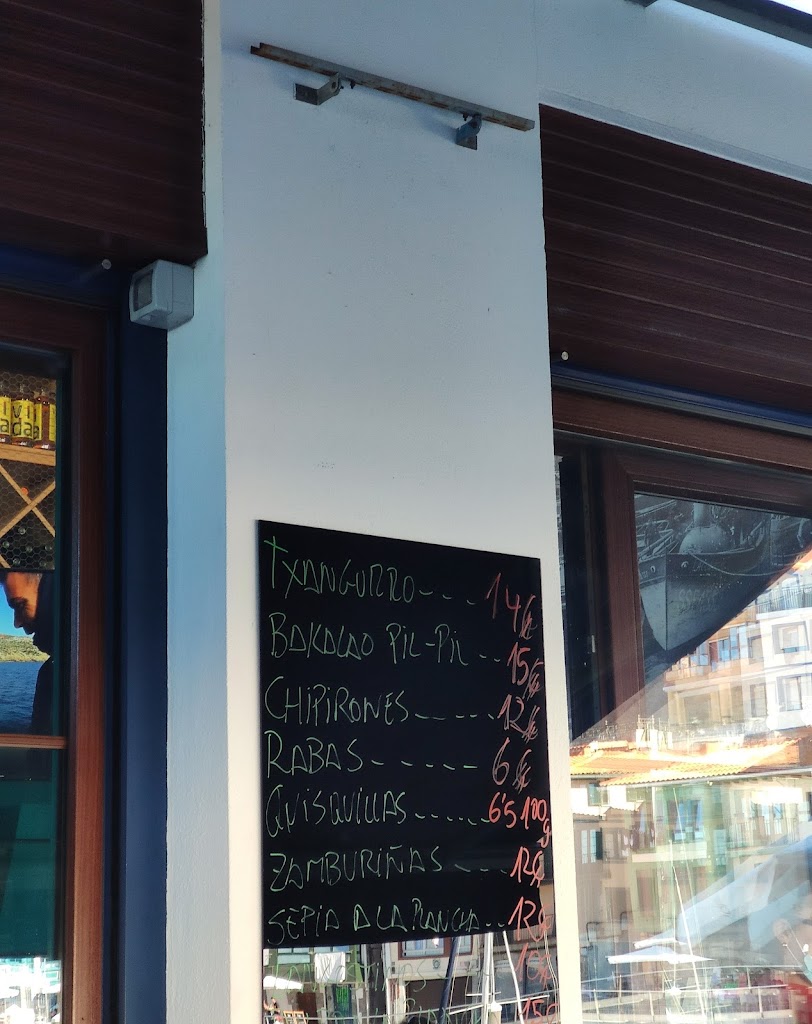 ivi
ada
TXANGURRO---14€
BAKALAO PIL-PIL--15€
CHIPIRONES-----12€
RABAS------6€
QUISQUILLAS-----6'5 100g
ZAMBURIÑAS---12€
SEPIA A LA PLANCHA--12€
15€